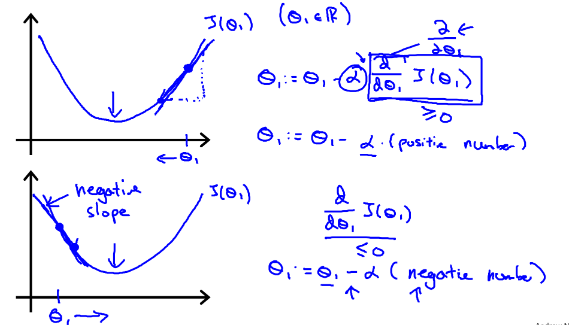 J(θ₁) (θ₁ ∈ ℝ)
∂/∂θ₁ ←
θ₁ := θ₁ - α d/dθ₁ J(θ₁)
≥ 0
← θ₁
θ₁ := θ₁ - α · (positie number)
negative
slope
J(θ₁)
d/dθ₁ J(θ₁)
≤ 0
θ₁ := θ₁ - α (negatie number)
θ₁ →